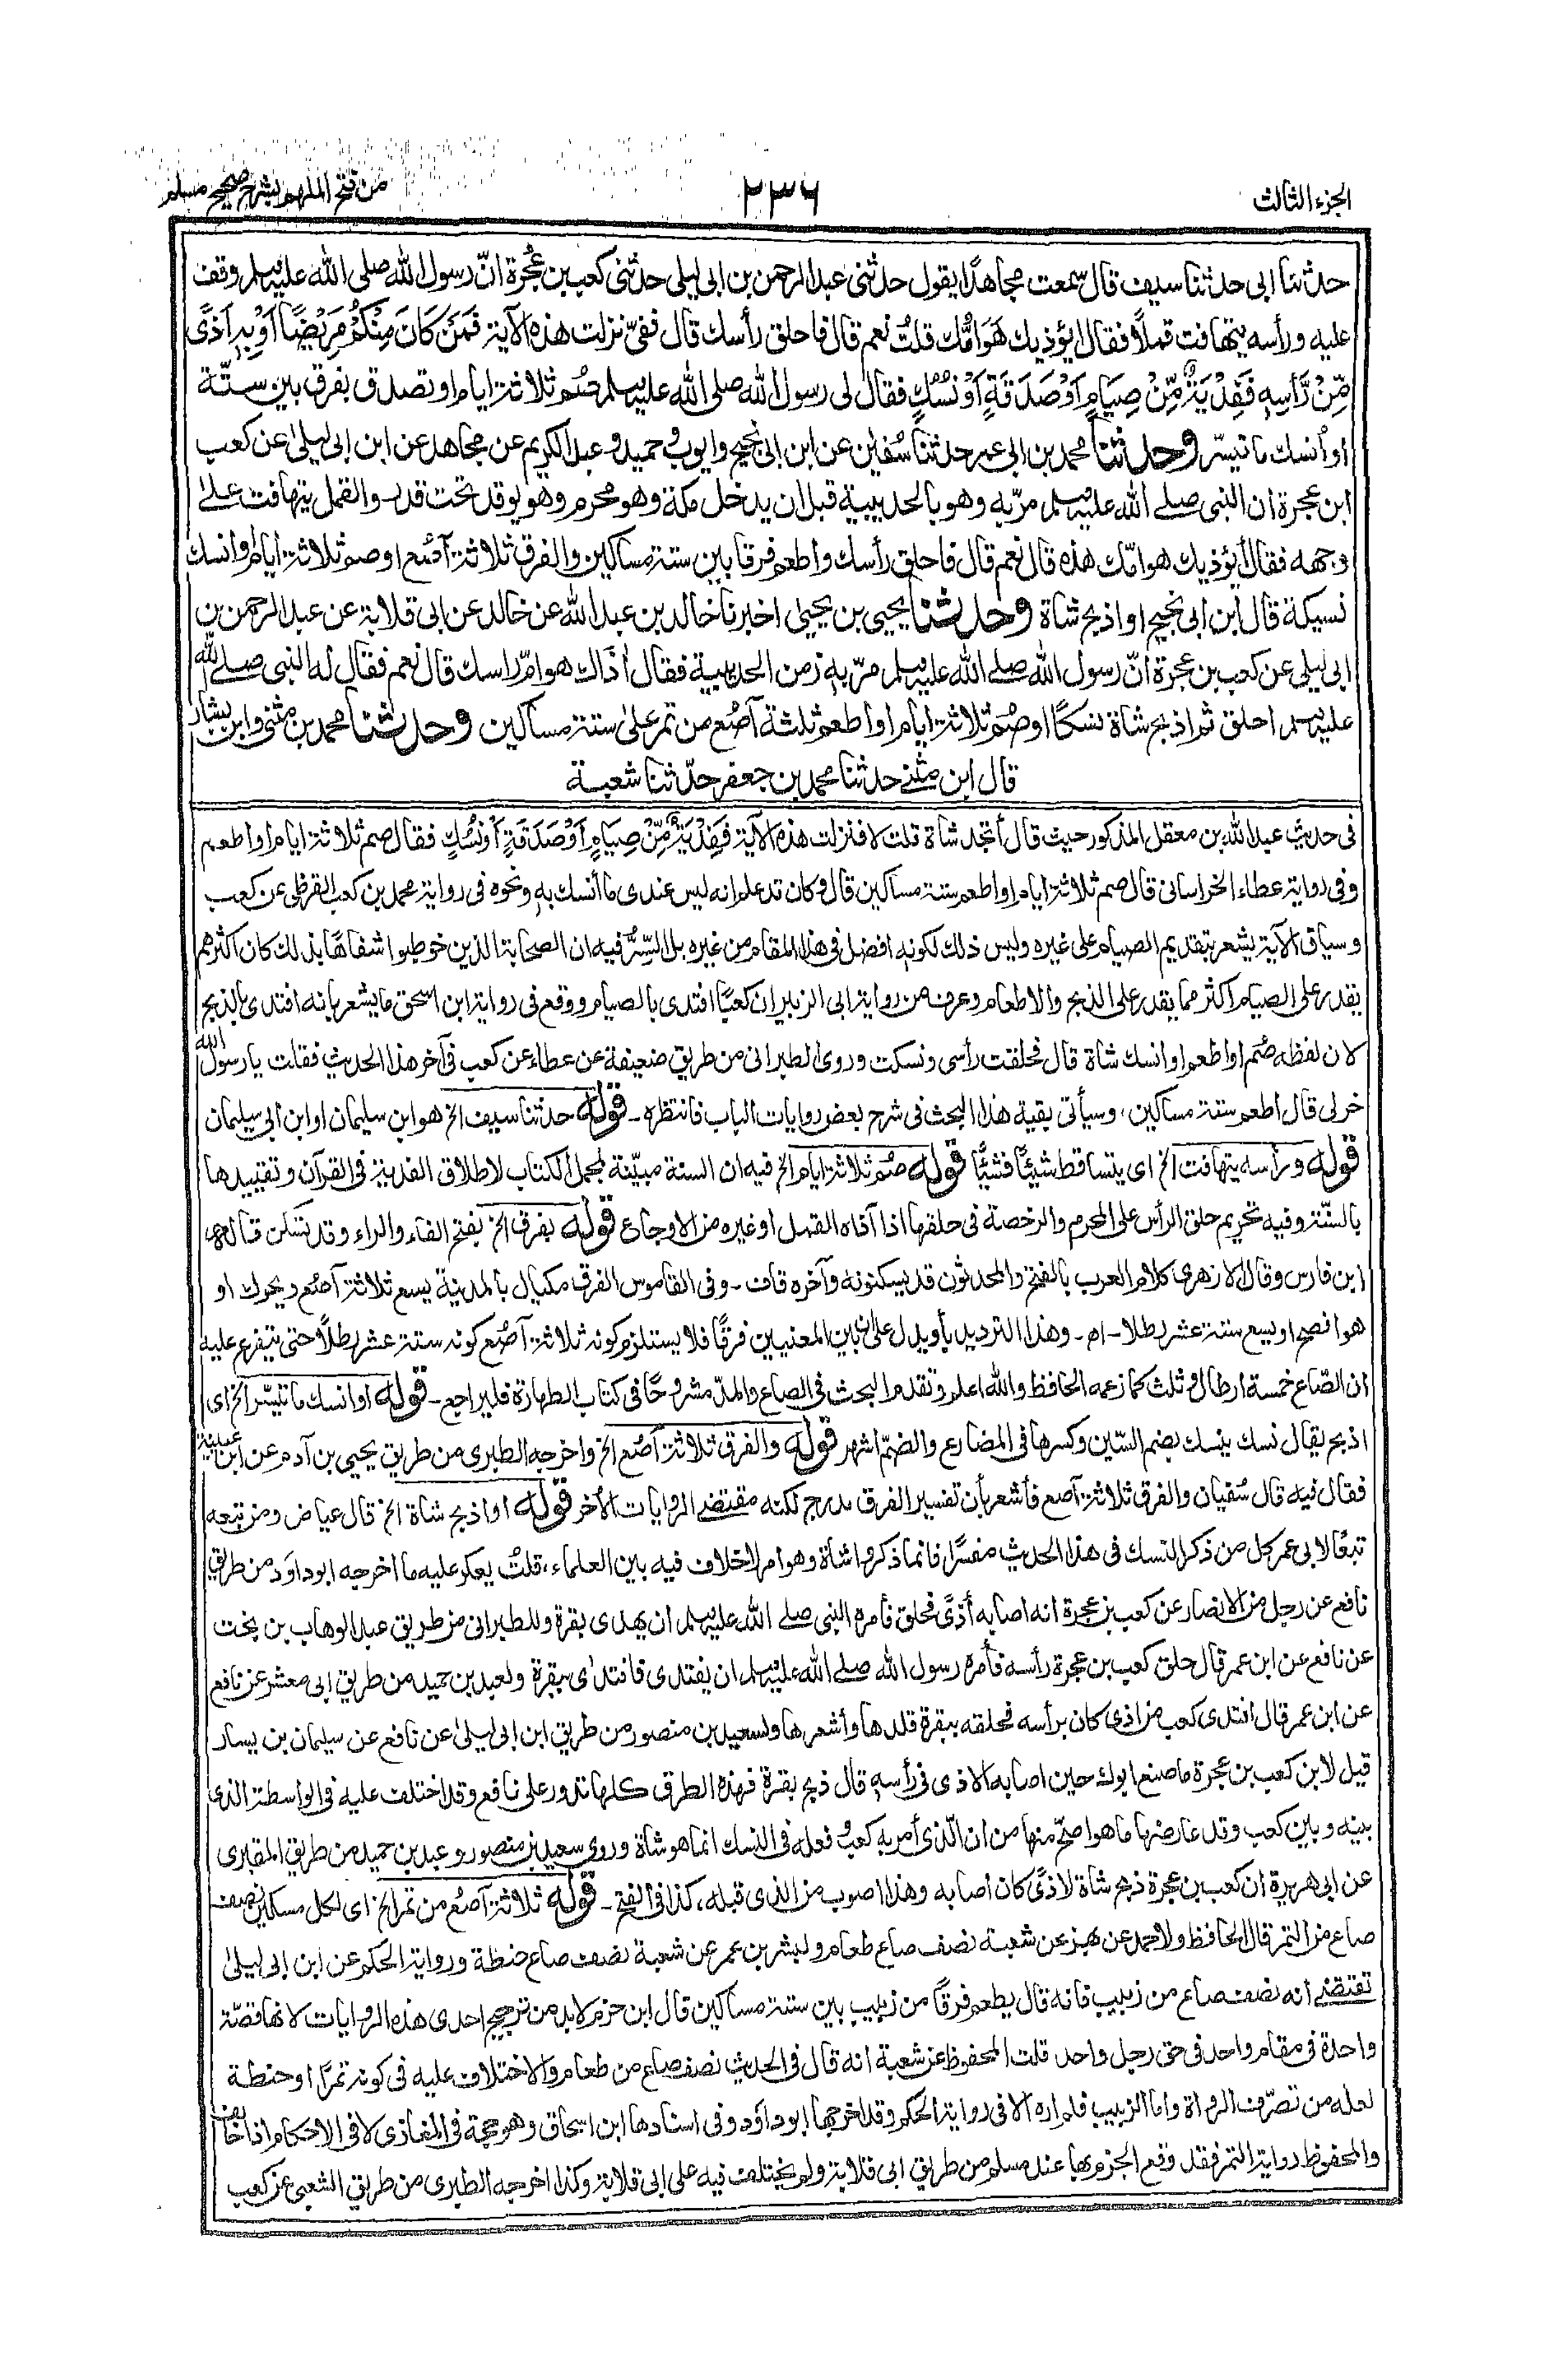 الجزء الثالث
٢٣٦
من فتح الملهم بشرح صحيح مسلم
حدثنا ابى حدثنا سيف قال سمعت مجاهدًا يقول حدثنى عبد الرحمن بن ابى ليلى حدثنى كعب بن عُجْرة انّ رسول الله صلى الله عليه وسلم وقف
عليه ورأسه يتهافت قملاً فقال ايؤذيك هَوَامُّك قلتُ نعم قال فاحلق رأسك قال ففىّ نزلت هذه الآية فَمَنْ كَانَ مِنْكُمْ مَرِيْضًا اَوْ بِهٖ اَذًى
مِّنْ رَّأْسِهٖ فَفِدْيَةٌ مِّنْ صِيَامٍ اَوْ صَدَقَةٍ اَوْ نُسُكٍ فقال لى رسول الله صلى الله عليه وسلم صُم ثلاثة ايام او تصدق بفرق بين ستّة
او اُنسك ما تيسّر وحدثنا محمد بن ابى عمر حدثنا سُفيٰن عن ابن ابى نجيح وايوب وحميد وعبد الكريم عن مجاهد عن ابن ابى ليلىٰ عن كعب
ابن عجرة ان النبى صلے الله عليه وسلم مرّبه وهو بالحديبية قبل ان يدخل مكة وهو محرم وهو يوقد تحت قدر والقمل يتهافت علےٰ
وجهه فقال أيؤذيك هوامّك هذه قال نعم قال فاحلق رأسك واطعم فرقا بين ستة مساكين والفرق ثلاثة آصُع او صم ثلاثة ايام او انسك
نسيكة قال ابن ابى نجيح او اذبح شاة وحدثنا يحيى بن يحيىٰ اخبرنا خالد بن عبد الله عن خالد عن ابى قلابة عن عبد الرحمن بن
ابى ليلى عن كعب بن عجرة انّ رسول الله صلے الله عليه وسلم مرّ بهٖ زمن الحديبية فقال اٰذاك هوامّ راسك قال نعم فقال له النبى صلے الله
عليه وسلم احلق ثم اذبح شاة نسكًا او صُم ثلاثة ايام او اطعم ثلثة آصُع من تمر علىٰ ستة مساكين وحدثنا محمد بن مثنى وابن بشار
قال ابن مثنٰے حدثنا محمد بن جعفر حدّثنا شعبة
فى حديث عبد الله بن معقل المذكور حيث قال أتجد شاة قلت لا فنزلت هذه الآية فَفِدْيَةٌ مِّنْ صِيَامٍ اَوْ صَدَقَةٍ اَوْ نُسُكٍ فقال صم ثلاثة ايام او اطعم
وفى رواية عطاء الخراسانى قال صم ثلاثة ايام او اطعم ستة مساكين قال وكان قد علم انه ليس عندى ما أنسك بهٖ ونحوه فى رواية محمد بن كعب القرظى عن كعب
وسياق الآية يشعر بتقديم الصيام على غيره وليس ذلك لكونهٖ افضل فى هذا المقام من غيره بل السِّرُّ فيه ان الصحابة الذين خوطبوا شفاهًا بذلك كان اكثرهم
يقدر على الصيام اكثر مما يقدر على الذبح والاطعام وعرف من رواية ابى الزبير ان كعبًا افتدى بالصيام ووقع فى رواية ابن اسحق ما يشعر بانه افتدى بالذبح
لان لفظه صُم او اطعم او انسك شاة قال فحلقت رأسى ونسكت وروى الطبرانى من طريق ضعيفة عن عطاء عن كعب فى آخر هذا الحديث فقلت يا رسول الله
خر لى قال اطعم ستة مساكين، وسيأتى بقية هذا البحث فى شرح بعض روايات الباب فانتظره ـ قوله حدثنا سيف الخ هو ابن سليمان او ابن ابى سليمان
قوله ورأسه يتهافت الخ اى يتساقط شيئًا فشيئًا قوله صُم ثلاثة ايام الخ فيه ان السنة مبيّنة لمجمل الكتاب لاطلاق الفدية فى القرآن وتقييدها
بالسّنّة وفيه تحريم حلق الرأس على المحرم والرخصة فى حلقها اذا آذاه القمل او غيره من الاوجاع قوله بفرق الخ بفتح الفاء والراء وقد تسكن قاله
ابن فارس وقال الازهرى كلام العرب بالفتح والمحدثون قد يسكنونه وآخره قاف ـ وفى القاموس الفرق مكيال بالمدينة يسع ثلاثة آصُع ويحرك او
هو افصح او يسع ستة عشر رطلا ـ اه ـ وهذا الترديد بأو يدل على ان بين المعنيين فرقًا فلا يستلزم كونه ثلاثة آصُع كونه ستة عشر رطلاً حتى يتفرع عليه
ان الصّاع خمسة ارطال وثلث كما زعمه الحافظ والله اعلم وتقدم البحث فى الصاع والمدّ مشروحًا فى كتاب الطهارة فليراجع ـ قوله او انسك ما تيسّر الخ اى
اذبح يقال نسك ينسك بضم السّين وكسرها فى المضارع والضمّ اشهر قوله والفرق ثلاثة آصُع الخ واخرجه الطبرى من طريق يحيى بن آدم عن ابن عيينة
فقال فيه قال سُفيان والفرق ثلاثة آصع فأشعر بأن تفسير الفرق مدرج لكنه مقتضى الروايات الأخر قوله او اذبح شاة الخ قال عياض ومن تبعه
تبعًا لابى عمر كل من ذكر النسك فى هذا الحديث مفسّرًا فانما ذكروا شاة وهو امر لا خلاف فيه بين العلماء، قلتُ يعكر عليه ما اخرجه ابوداوَد من طريق
نافع عن رجل من الانصار عن كعب بن عجرة انه اصابه أذًى فحلق فأمره النبى صلے الله عليه وسلم ان يهدى بقرة وللطبرانى من طريق عبد الوهاب بن بخت
عن نافع عن ابن عمر قال حلق كعب بن عجرة رأسه فأمره رسول الله صلے الله عليه وسلم ان يفتدى فافتدىٰ ببقرة ولعبد بن حميد من طريق ابى معشر عن نافع
عن ابن عمر قال افتدى كعب من اذى كان برأسه فحلقه ببقرة قلدها وأشعرها ولسعيد بن منصور من طريق ابن ابى ليلىٰ عن نافع عن سليمان بن يسار
قيل لابن كعب بن عجرة ما صنع ابوك حين اصابه الاذى فى رأسهٖ قال ذبح بقرة فهذه الطرق كلها تدور على نافع وقد اختلف عليه فى الواسطة الذى
بينه وبين كعب وقد عارضها ما هو اصحّ منها من ان الّذى أمر به كعب وفعله فى النسك انما هو شاة وروى سعيد بن منصور وعبد بن حميد من طريق المقبرى
عن ابى هريرة ان كعب بن عجرة ذبح شاة لاذًى كان أصابه وهذا اصوب من الذى قبله، كذا فى الفتح ـ قوله ثلاثة آصُع من تمر الخ اى لكل مسكين نصف
صاع من التمر قال الحافظ ولاحمد عن بهز عن شعبة نصف صاع طعام ولبشر بن عمر عن شعبة نصف صاع حنطة ورواية الحكم عن ابن ابى ليلىٰ
تقتضى أنه نصف صاع من زبيب فانه قال يطعم فرقًا من زبيب بين ستة مساكين قال ابن حزم لابد من ترجيح احدى هذه الروايات لانها قصّة
واحدة فى مقام واحد فى حق رجل واحد قلت المحفوظ عن شعبة انه قال فى الحديث نصف صاع من طعام والاختلاف عليه فى كونه تمرًا او حنطة
لعله من تصرّف الرواة واما الزبيب فلم اره الا فى رواية الحكم وقد اخرجها ابوداوَد وفى اسنادها ابن اسحاق وهو حجة فى المغازى لا فى الاحكام اذا خالف
والمحفوظ رواية التمر فقد وقع الجزم بها عند مسلم من طريق ابى قلابة ولم يختلف فيه على ابى قلابة وكذا اخرجه الطبرى من طريق الشعبى عن كعب